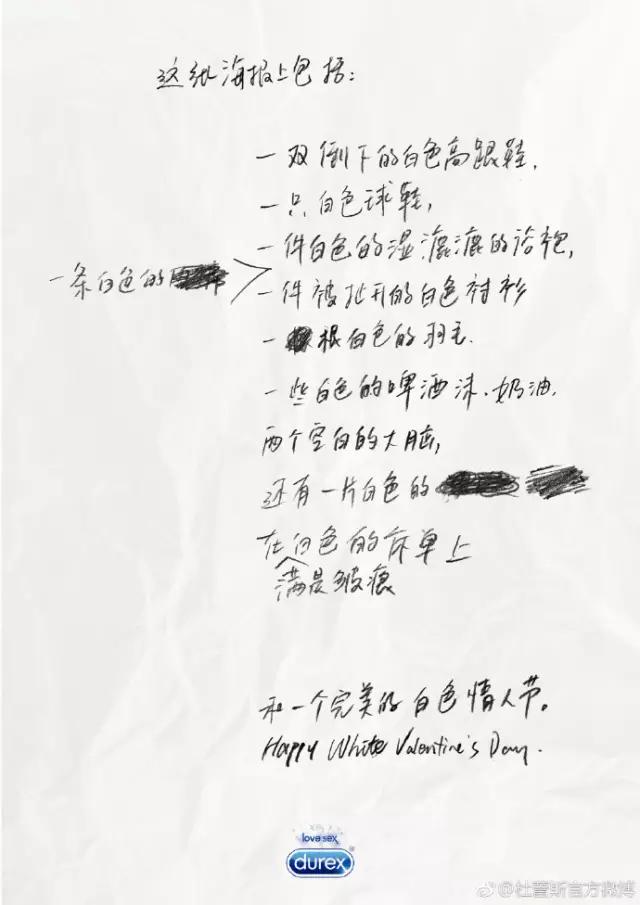 这纸海报上包括：
一双倒下的白色高跟鞋,
一只白色球鞋,
一件白色的湿漉漉的浴袍,
一条白色的
一件被扯开的白色衬衫
一根白色的羽毛.
一些白色的啤酒沫、奶油.
两个空白的大脑,
还有一片白色的
在白色的床单上
满是皱痕
和一个完美的白色情人节。
Happy White Valentine's Day.
love sex
durex®
@杜蕾斯官方微博